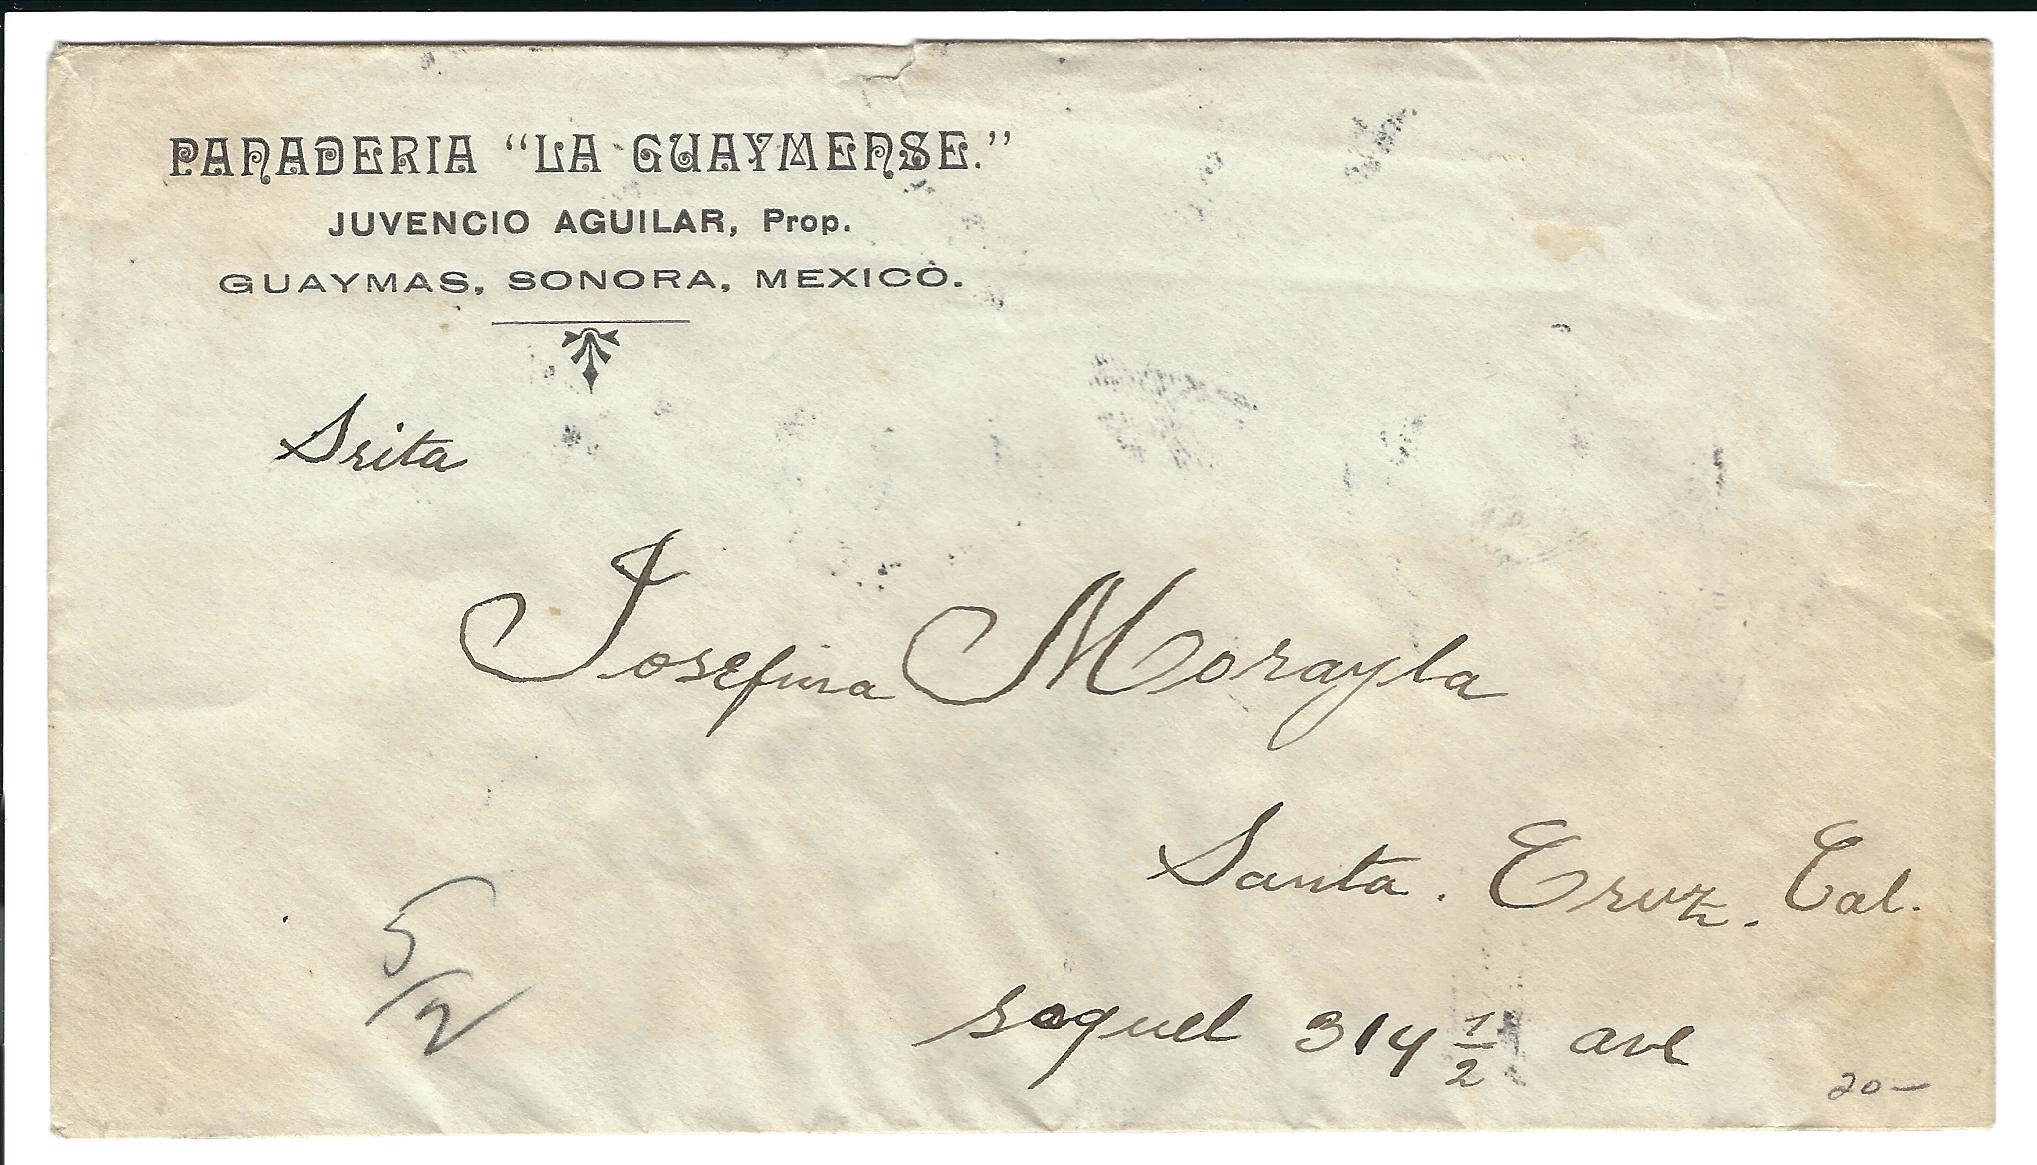 PANADERIA "LA GUAYMENSE."
JUVENCIO AGUILAR, Prop.
GUAYMAS, SONORA, MEXICO.
Srita
Josefina Morayla
Santa. Cruz. Cal.
soquel 314 1/2 ave
5/2
20-